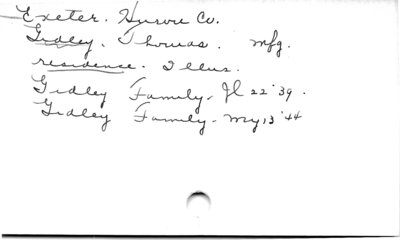 Exeter. Huron Co.
Gidley. Thomas. mfg.
residence. Illus.
Gidley Family. Jl 22 '39.
Gidley Family - My 13 '44